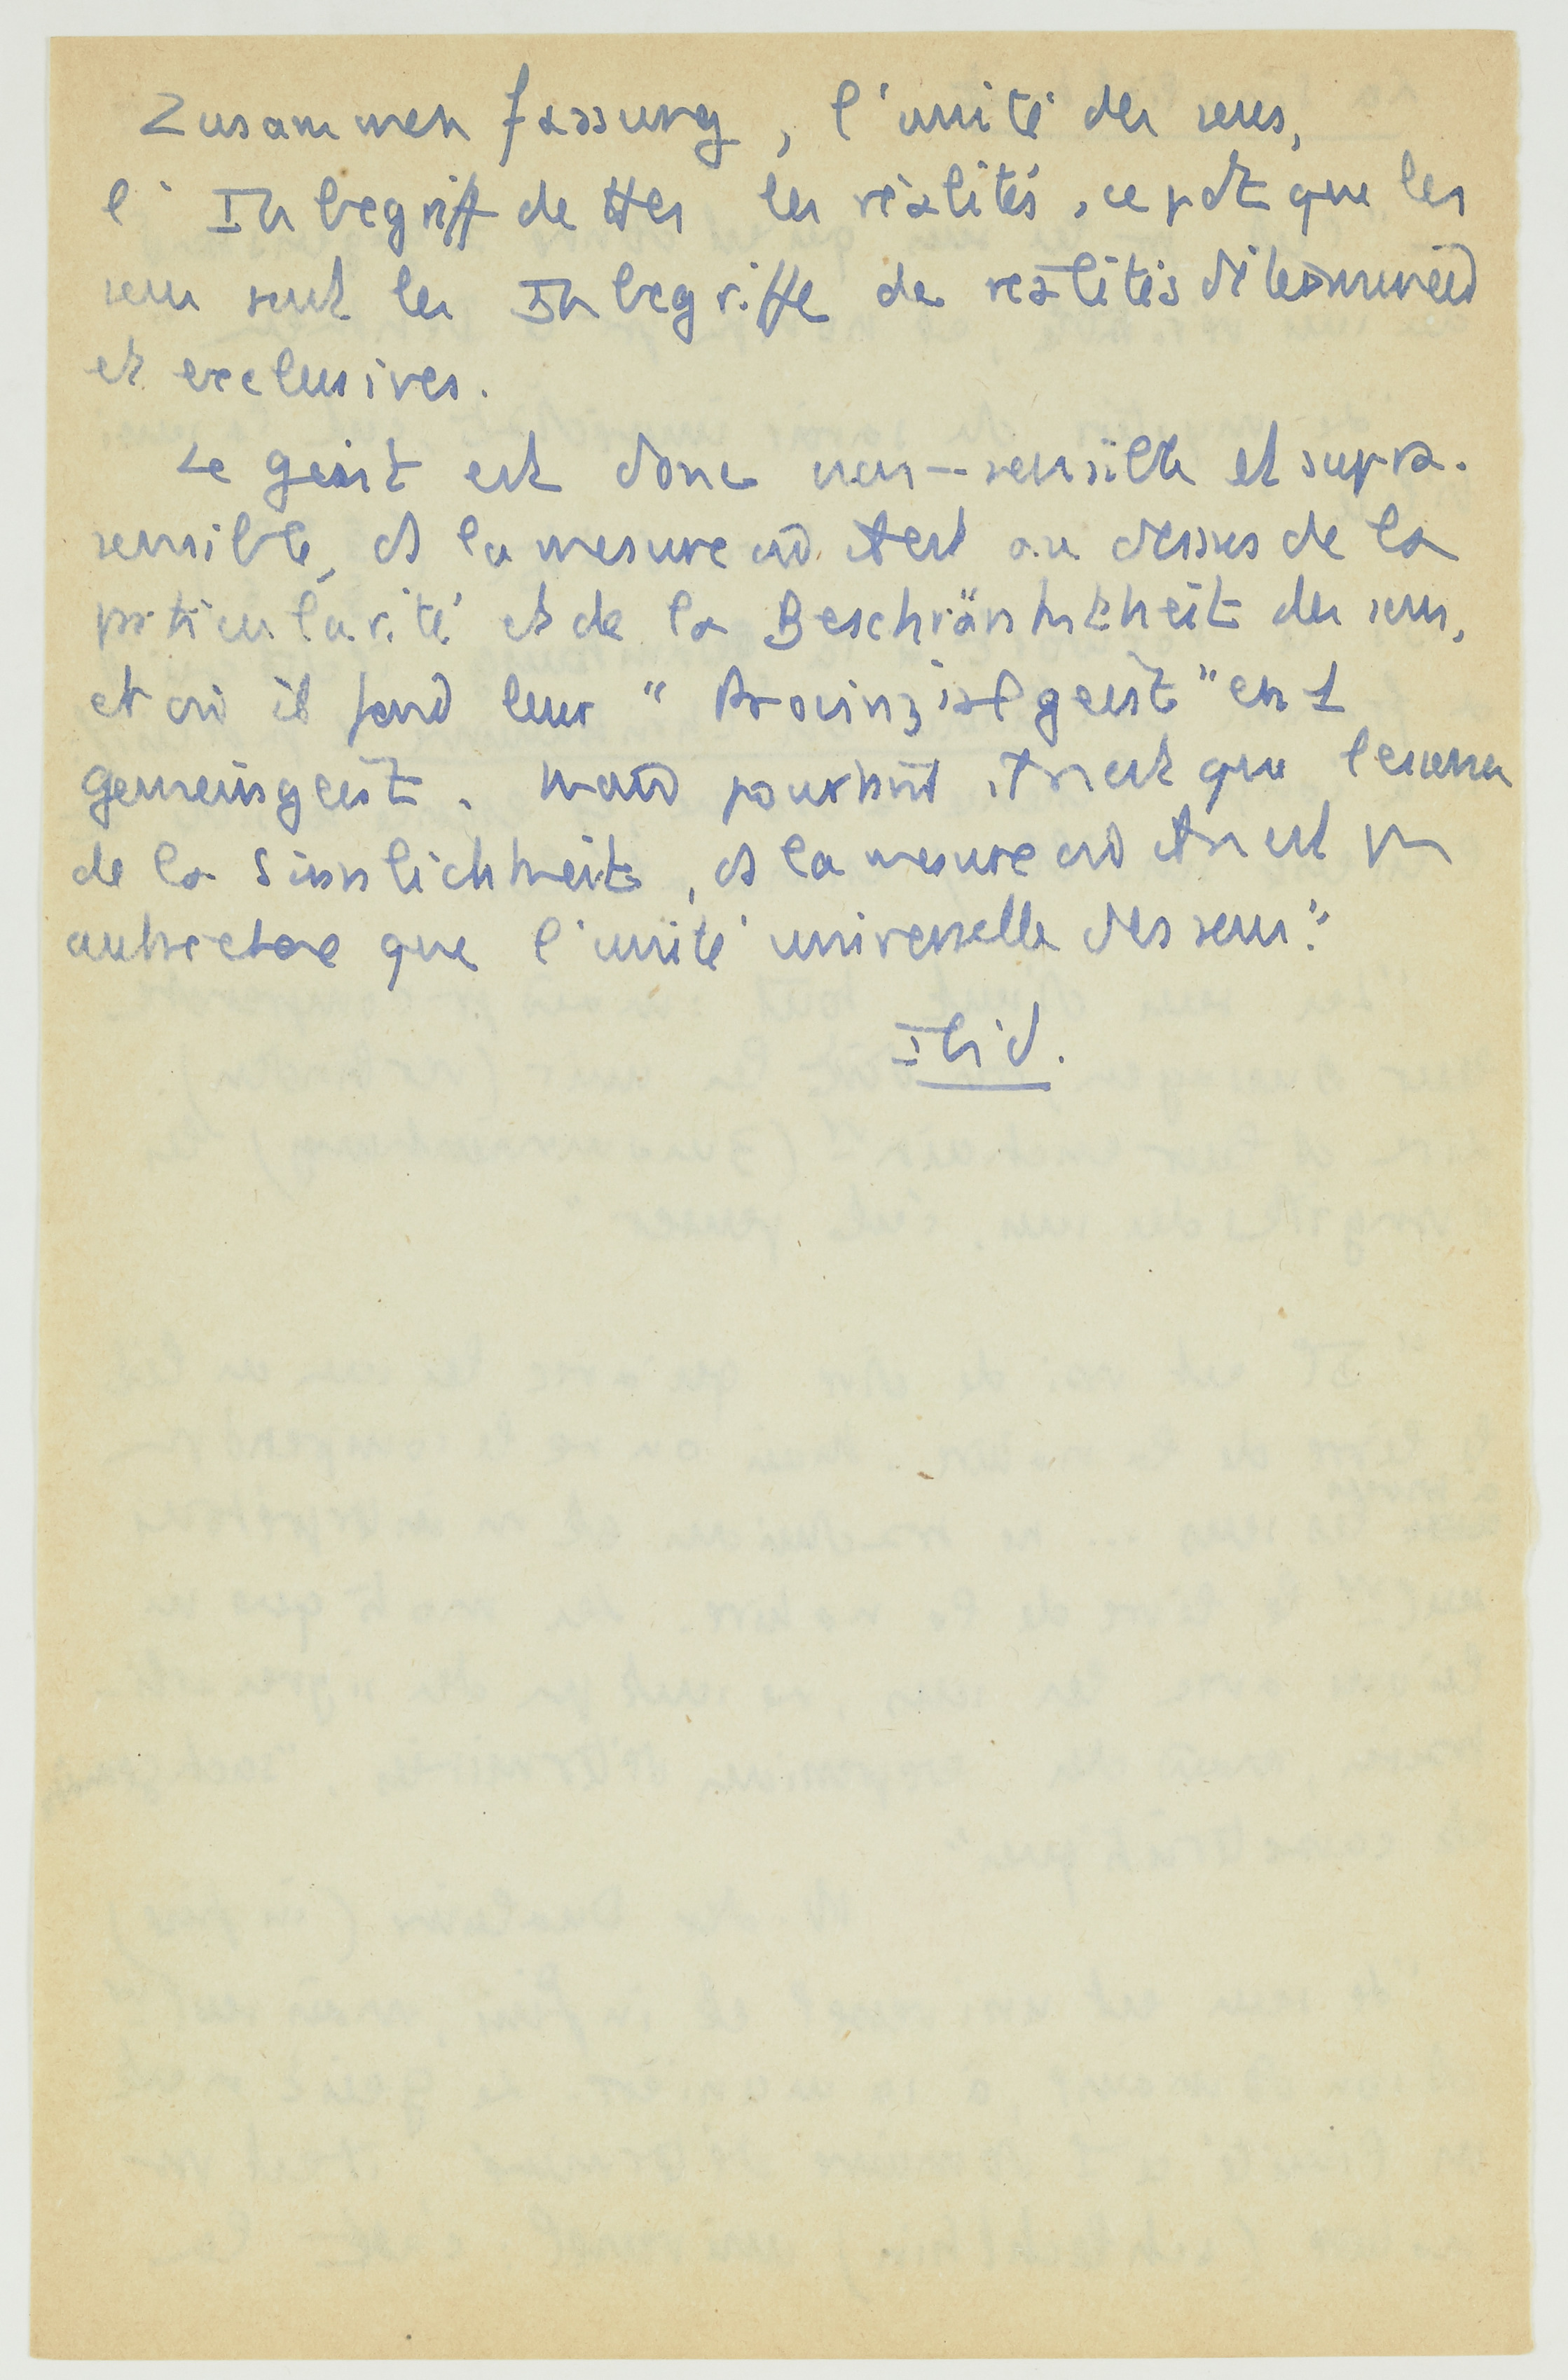 Zusammenfassung, l'unité des sens,
l'Inbegriff de ttes les réalités, cepdt que les
sens sont les Inbegriffe de réalités déterminées
et exclusives.
Le geist est donc non-sensible et supra-
sensible, ds la mesure où il est au dessus de la
particularité et de la Beschränktheit des sens,
et où il fond leur "Provinzialgeist" en 1
gemeingeist. Mais pourtant il n'est que l'essence
de la Sinnlichkeit, ds la mesure où il n'est pr
autre chose que l'unité universelle des sens."
Ibid.